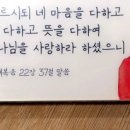 르시되 네 마음을 다하고
다하고 뜻을 다하여
나님을 사랑하라 하셨으니
복음 22장 37절 말씀